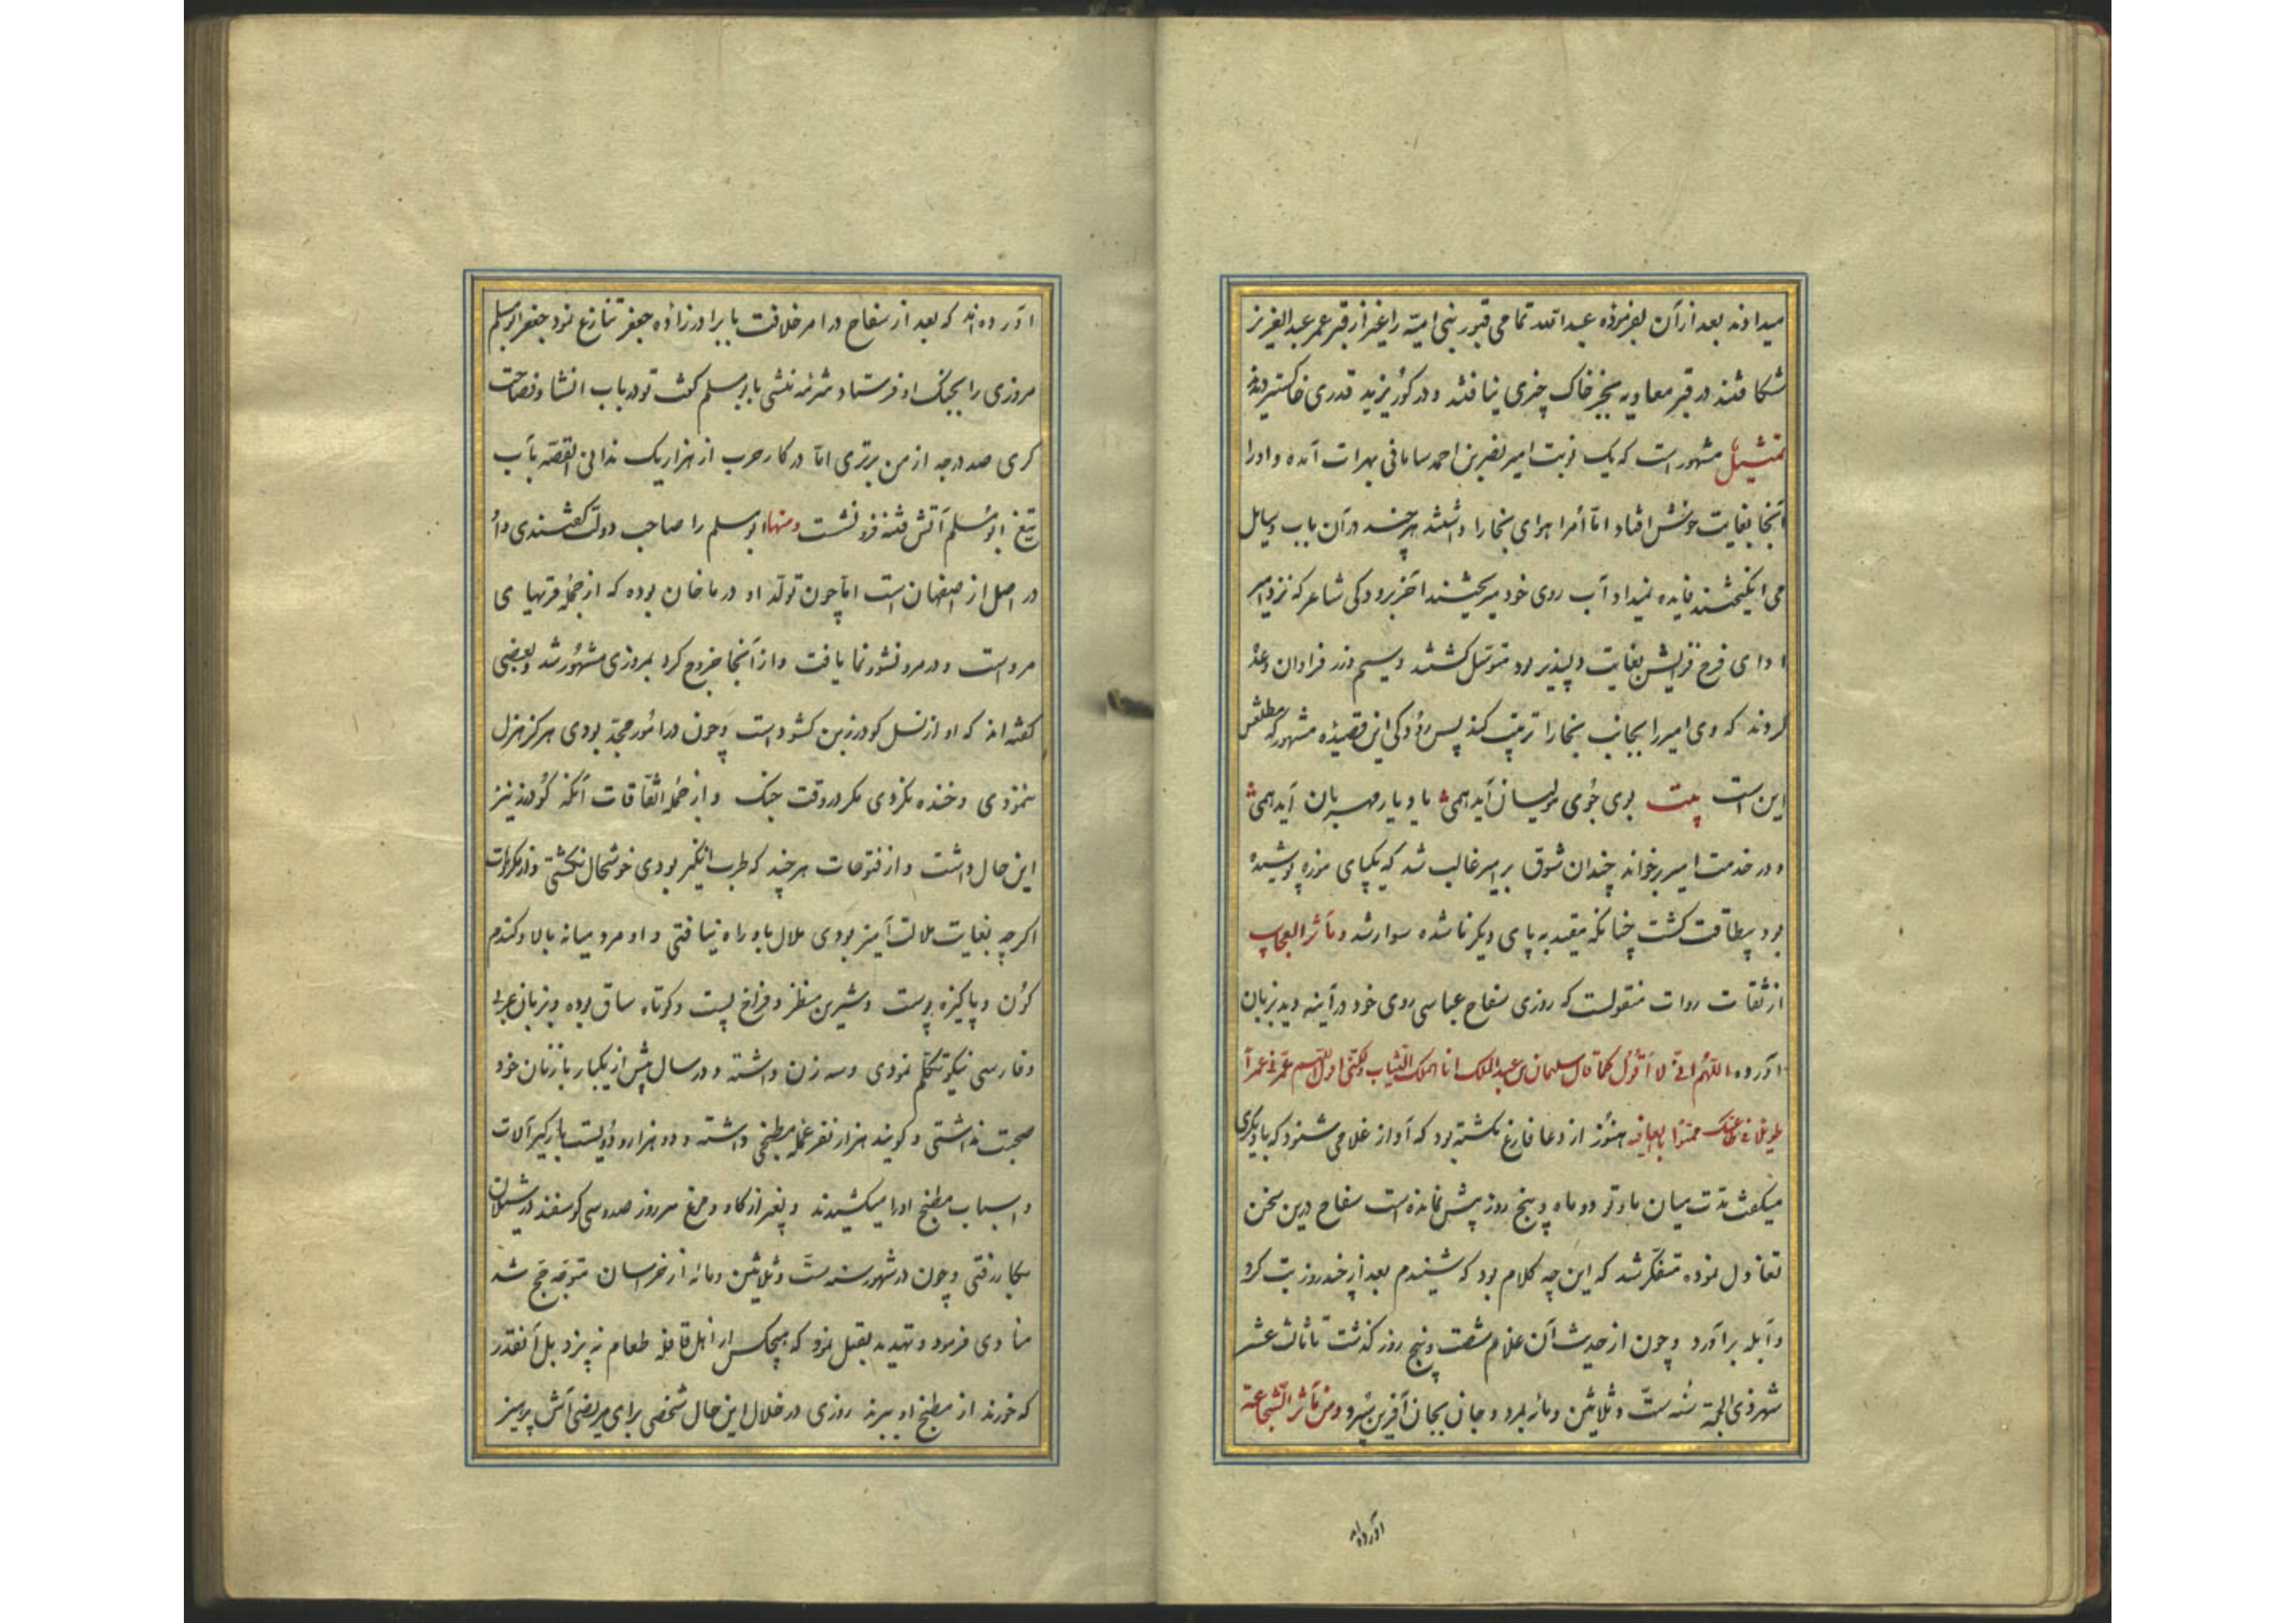 میدادند بعد از آن بفرموده عبدالله تمامی قبور بنی امیّه را غیر از قبر عمر عبدالعزیز
شکافتند در قبر معاویه بجز خاک چیزی نیافتند و در کور یزید قدری خاکستر دیدند
تمثیل مشهور است که یک نوبت امیر نصر بن احمد سامانی بهرات آمده و او را
آنجا بغایت خوش افتاد امّا امرا هوای بخارا داشتند هرچند در آن باب وسایل
می انکیختند فایده نمیداد و آب روی خود میریختند آخر برودکی شاعر که نزد امیر
ادای فرح فزایش بغایت دلپذیر بود متوسّل کشتند و سیم و زر فراوان وعده
کردند که وی امیر را بجانب بخارا ترغیب کند پس رودکی این قصیده مشهور که مطلعش
این است بیت بوی جوی مولیان آید همی یاد یار مهربان آید همی
و در خدمت امیر برخواند چندان شوق بر امیر غالب شد که یکپای موزه پوشیده
بود بیطاقت کشت چنانکه مقید به پای دیکر ناشده سوار شد و مآثر العجایب
از ثقات روات منقولست که روزی سفاح عباسی روی خود در آینه دید بزبان
آورده اللّهم انّی لا اقول کما قال سلیمان بن عبدالملک انا الملک الشباب ولکنّی اقول اللّهم عمّرنی عمرا
طویلا فی طاعتک ممتّعا بالعافیه هنوز از دعا فارغ نکشته بود که آواز غلامی شنود که با دیکری
میکفت مدّت میان ما و تو دو ماه و پنج روز بیش نمانده است سفاح درین سخن
تفاول نموده متفکّر شد که این چه کلام بود که شنیدم بعد از چند روز تب کرد
و آبله برآورد و چون از حدیث آن غلام شصت و پنج روز کذشت تا ثالث عشر
شهر ذی الحجة سنه ستّ و ثلاثین و مائه بمرد و جان بجان آفرین سپرد و من مآثر الشجاعة
آورده اند
آورده اند که بعد از سفاح در امر خلافت با برادرزاده جعفر تنازع نمود جعفر ابومسلم
مروزی را بجنک او فرستاد منشی بابومسلم کفت تو در باب انشا و فصاحت
کری صد درجه از من برتری امّا در کار حرب از هزار یک ندانی القصّه بآب
تیغ ابومسلم آتش فتنه فرو نشست و منها ابومسلم را صاحب دولت کفتندی و او
در اصل از اصفهان است امّا چون تولّد او در ماخان بوده که از جمله قریهای
مرو است و در مرو نشو و نما یافت و از آنجا خروج کرد بمروزی مشهور شد و بعضی
کفته اند که او از نسل کودرز بن کشواد است و چون در امور مجدّ بودی هرکز هزل
ننمودی و خنده نکردی مکر در وقت جنک و از جمله اتّفاقات آنکه کودرز نیز
این حال داشت و از فتوحات هر چند که طرب انکیز بودی خوشحال نکشتی و از مکروهات
اکرچه بغایت ملالت آمیز بودی ملال باو راه نیافتی و او مرد میانه بالا و کندم
کون و پاکیزه پوست و شیرین منظر و فراخ پشت و کوتاه ساق بوده و بزبان عربی
و فارسی نیکو تکلّم نمودی و سه زن داشته و در سال بیش از یکبار با زنان خود
صحبت نداشتی و کویند هزار نفر عمله مطبخی داشته و دو هزار و دویست بارکیر آلات
و اسباب مطبخ او را میکشیدند و بغیر از کاو و مرغ هر روز صد و سی کوسفند در شیلان
بکار رفتی و چون در شهور سنه ستّ و ثلاثین و مائه از خراسان متوجّه حج شد
منادی فرمود و تهدید بقتل نمود که هیچکس از اهل قافله طعام نه پزد بل آنقدر
که خورند از مطبخ او ببرند روزی در خلال این حال شخصی برای مریضی آش پرهیز